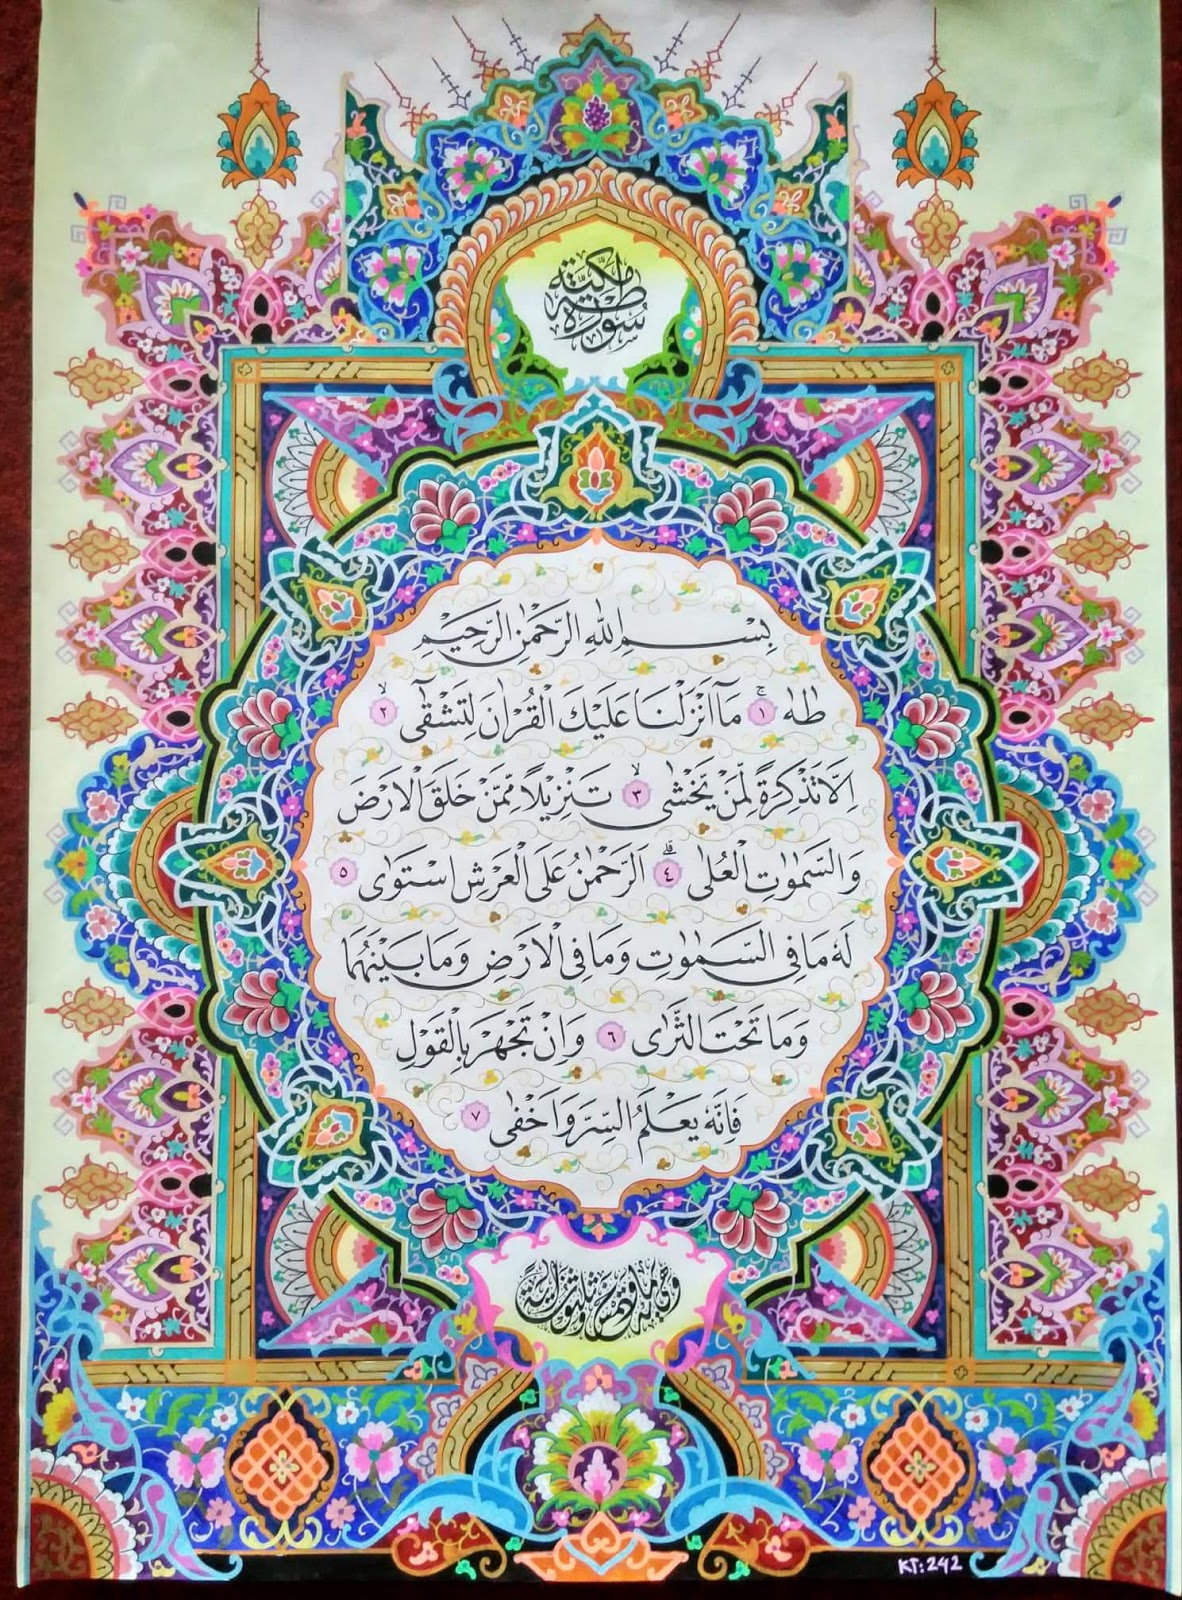 سُوْرَةُ طٰهٰ مَكِّيَّة
بِسْمِ اللهِ الرَّحْمٰنِ الرَّحِيْمِ
طٰهٰ ۚ ١ مَآ اَنْزَلْنَا عَلَيْكَ الْقُرْاٰنَ لِتَشْقٰٓى ۙ ٢
اِلَّا تَذْكِرَةً لِّمَنْ يَّخْشٰى ۙ ٣ تَنْزِيْلًا مِّمَّنْ خَلَقَ الْاَرْضَ
وَالسَّمٰوٰتِ الْعُلٰى ۗ ٤ اَلرَّحْمٰنُ عَلَى الْعَرْشِ اسْتَوٰى ٥
لَهٗ مَا فِى السَّمٰوٰتِ وَمَا فِى الْاَرْضِ وَمَا بَيْنَهُمَا
وَمَا تَحْتَ الثَّرٰى ٦ وَاِنْ تَجْهَرْ بِالْقَوْلِ
فَاِنَّهٗ يَعْلَمُ السِّرَّ وَاَخْفٰى ٧
KT: 242